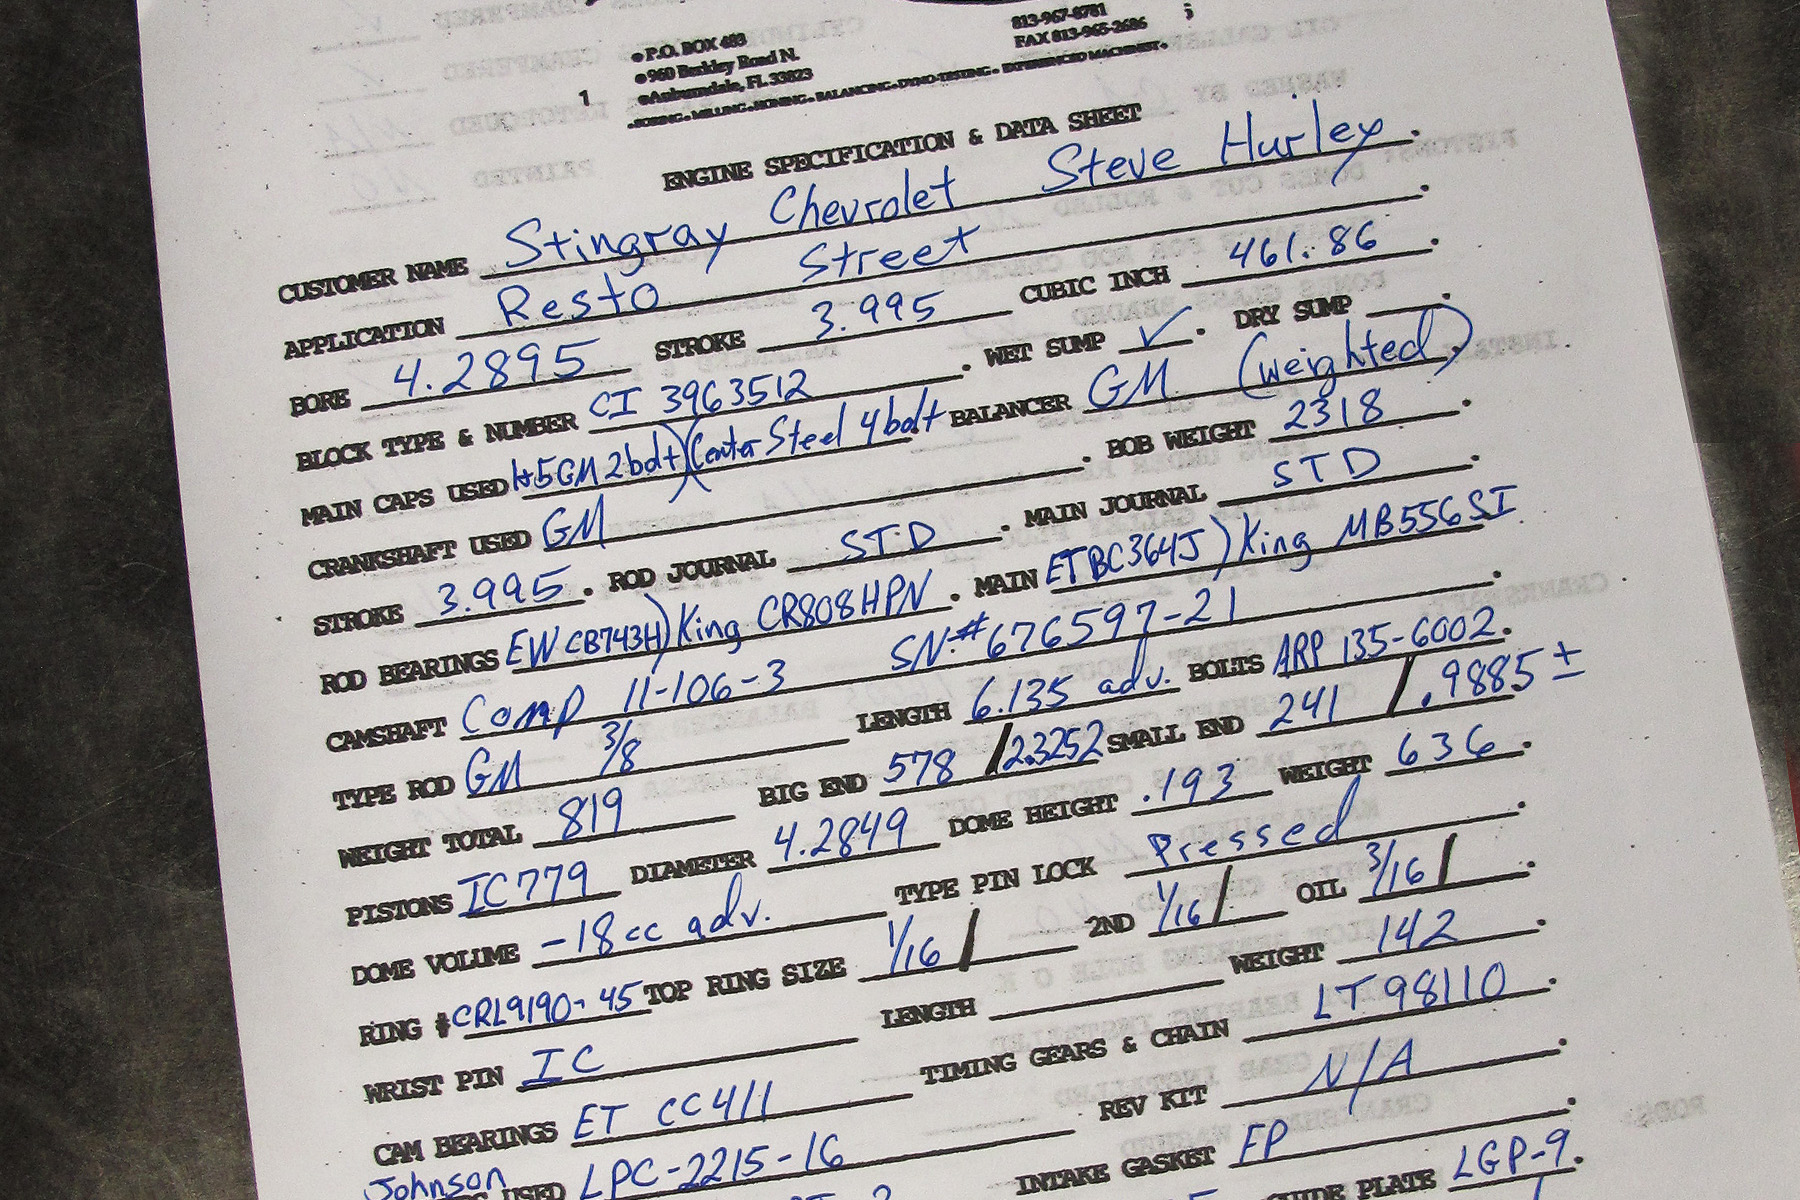 813-967-8781
P.O. BOX 483 FAX 813-965-2686
960 Berkley Road N.
1 Auburndale, FL 33823
BORING • MILLING • HONING • BALANCING • DYNO-TESTING • EXPERIENCED MACHINIST •
ENGINE SPECIFICATION & DATA SHEET
CUSTOMER NAME Stingray Chevrolet Steve Hurley .
APPLICATION Resto Street .
BORE 4.2895 STROKE 3.995 CUBIC INCH 461.86 .
BLOCK TYPE & NUMBER CI 3963512 . WET SUMP ✓ . DRY SUMP .
MAIN CAPS USED 1+5 GM 2 bolt)(Center Steel 4 bolt BALANCER GM (weighted) .
CRANKSHAFT USED GM . BOB WEIGHT 2318 .
STROKE 3.995 . ROD JOURNAL STD . MAIN JOURNAL STD .
ROD BEARINGS EW CB743H) King CR808HPN . MAIN ET BC364J) King MB556SI
CAMSHAFT Comp 11-106-3 SN# 676597-21 .
TYPE ROD GM 3/8 LENGTH 6.135 adv. BOLTS ARP 135-6002 .
WEIGHT TOTAL 819 BIG END 578 / 2.3252 SMALL END 241 / .9885 ±
PISTONS IC779 DIAMETER 4.2849 DOME HEIGHT .193 WEIGHT 636 .
DOME VOLUME -18cc adv. TYPE PIN LOCK Pressed .
RING # CRL9190-45 TOP RING SIZE 1/16 / 2ND 1/16 / OIL 3/16 / .
WRIST PIN IC LENGTH WEIGHT 142 .
CAM BEARINGS ET CC411 TIMING GEARS & CHAIN LT 98110 .
Johnson USED LPC-2215-16 REV KIT N/A .
INTAKE GASKET FP .
PLATE LGP-9 .